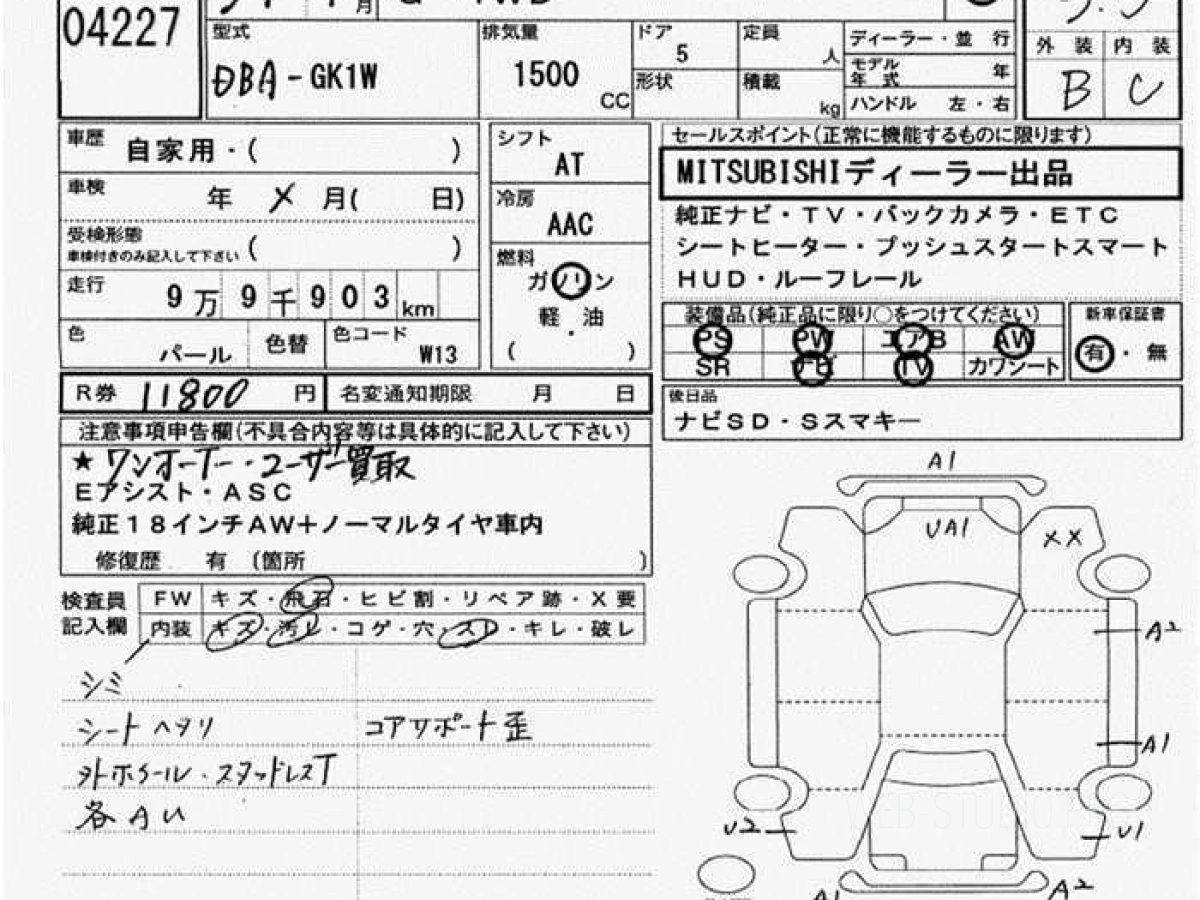 04227
月
型式
DBA-GK1W
排気量
1500
CC
ドア
5
形状
定員
人
積載
kg
ディーラー・並 行
モデル年式 年
ハンドル 左・右
外 装 内 装
B C
車歴
自家用・( )
車検
年 X 月( 日)
受検形態
車検付きのみ記入して下さい ( )
走行
9万9千903km
色
パール
色替
色コード
W13
シフト
AT
冷房
AAC
燃料
ガソリン
軽・油
( )
セールスポイント(正常に機能するものに限ります)
MITSUBISHIディーラー出品
純正ナビ・TV・バックカメラ・ETC
シートヒーター・プッシュスタートスマート
HUD・ルーフレール
装備品(純正品に限り○をつけてください)
PS PW エアB AW
SR ナビ TV カワシート
新車保証書
有・無
R券 11800 円
名変通知期限 月 日
後日品
ナビSD・Sスマキー
注意事項申告欄(不具合内容等は具体的に記入して下さい)
★ワンオーナー・ユーザー買取
Eアシスト・ASC
純正18インチAW+ノーマルタイヤ車内
修復歴 有 (箇所 )
検査員記入欄
FW キズ・飛石・ヒビ割・リペア跡・X要
内装 キズ・汚レ・コゲ・穴・スレ・キレ・破レ
シミ
シートヘタリ
コアサポート歪
外ホイール・スタッドレスT
各AU
A1
UA1
XX
A2
A1
U2
U1
A1
A2